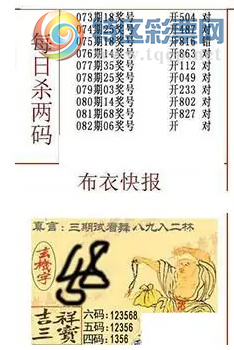 每日杀两码
073期18奖号 开504 对
074期25奖号 开487 对
075期18奖号 开816 错
076期14奖号 开863 对
077期35奖号 开112 对
078期25奖号 开049 对
079期03奖号 开233 对
080期14奖号 开802 对
081期68奖号 开827 对
082期06奖号 开 对
布衣快报
真言：三期试看舞八九入二林
玄機字
48
吉祥
三寶
六码：123568
五码：12356
四码：1356